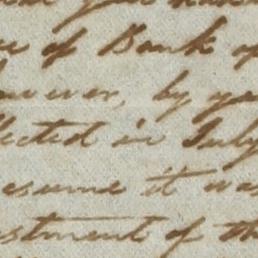 of Bank of
however, by
lected in July
esume it was
stment of th